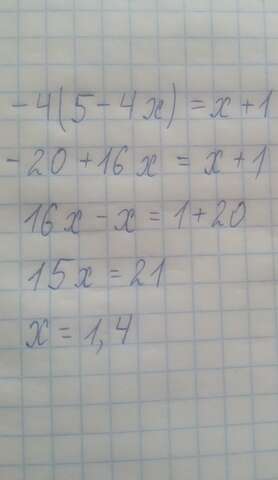 -4(5-4x)=x+1
-20+16x=x+1
16x-x=1+20
15x=21
x=1,4